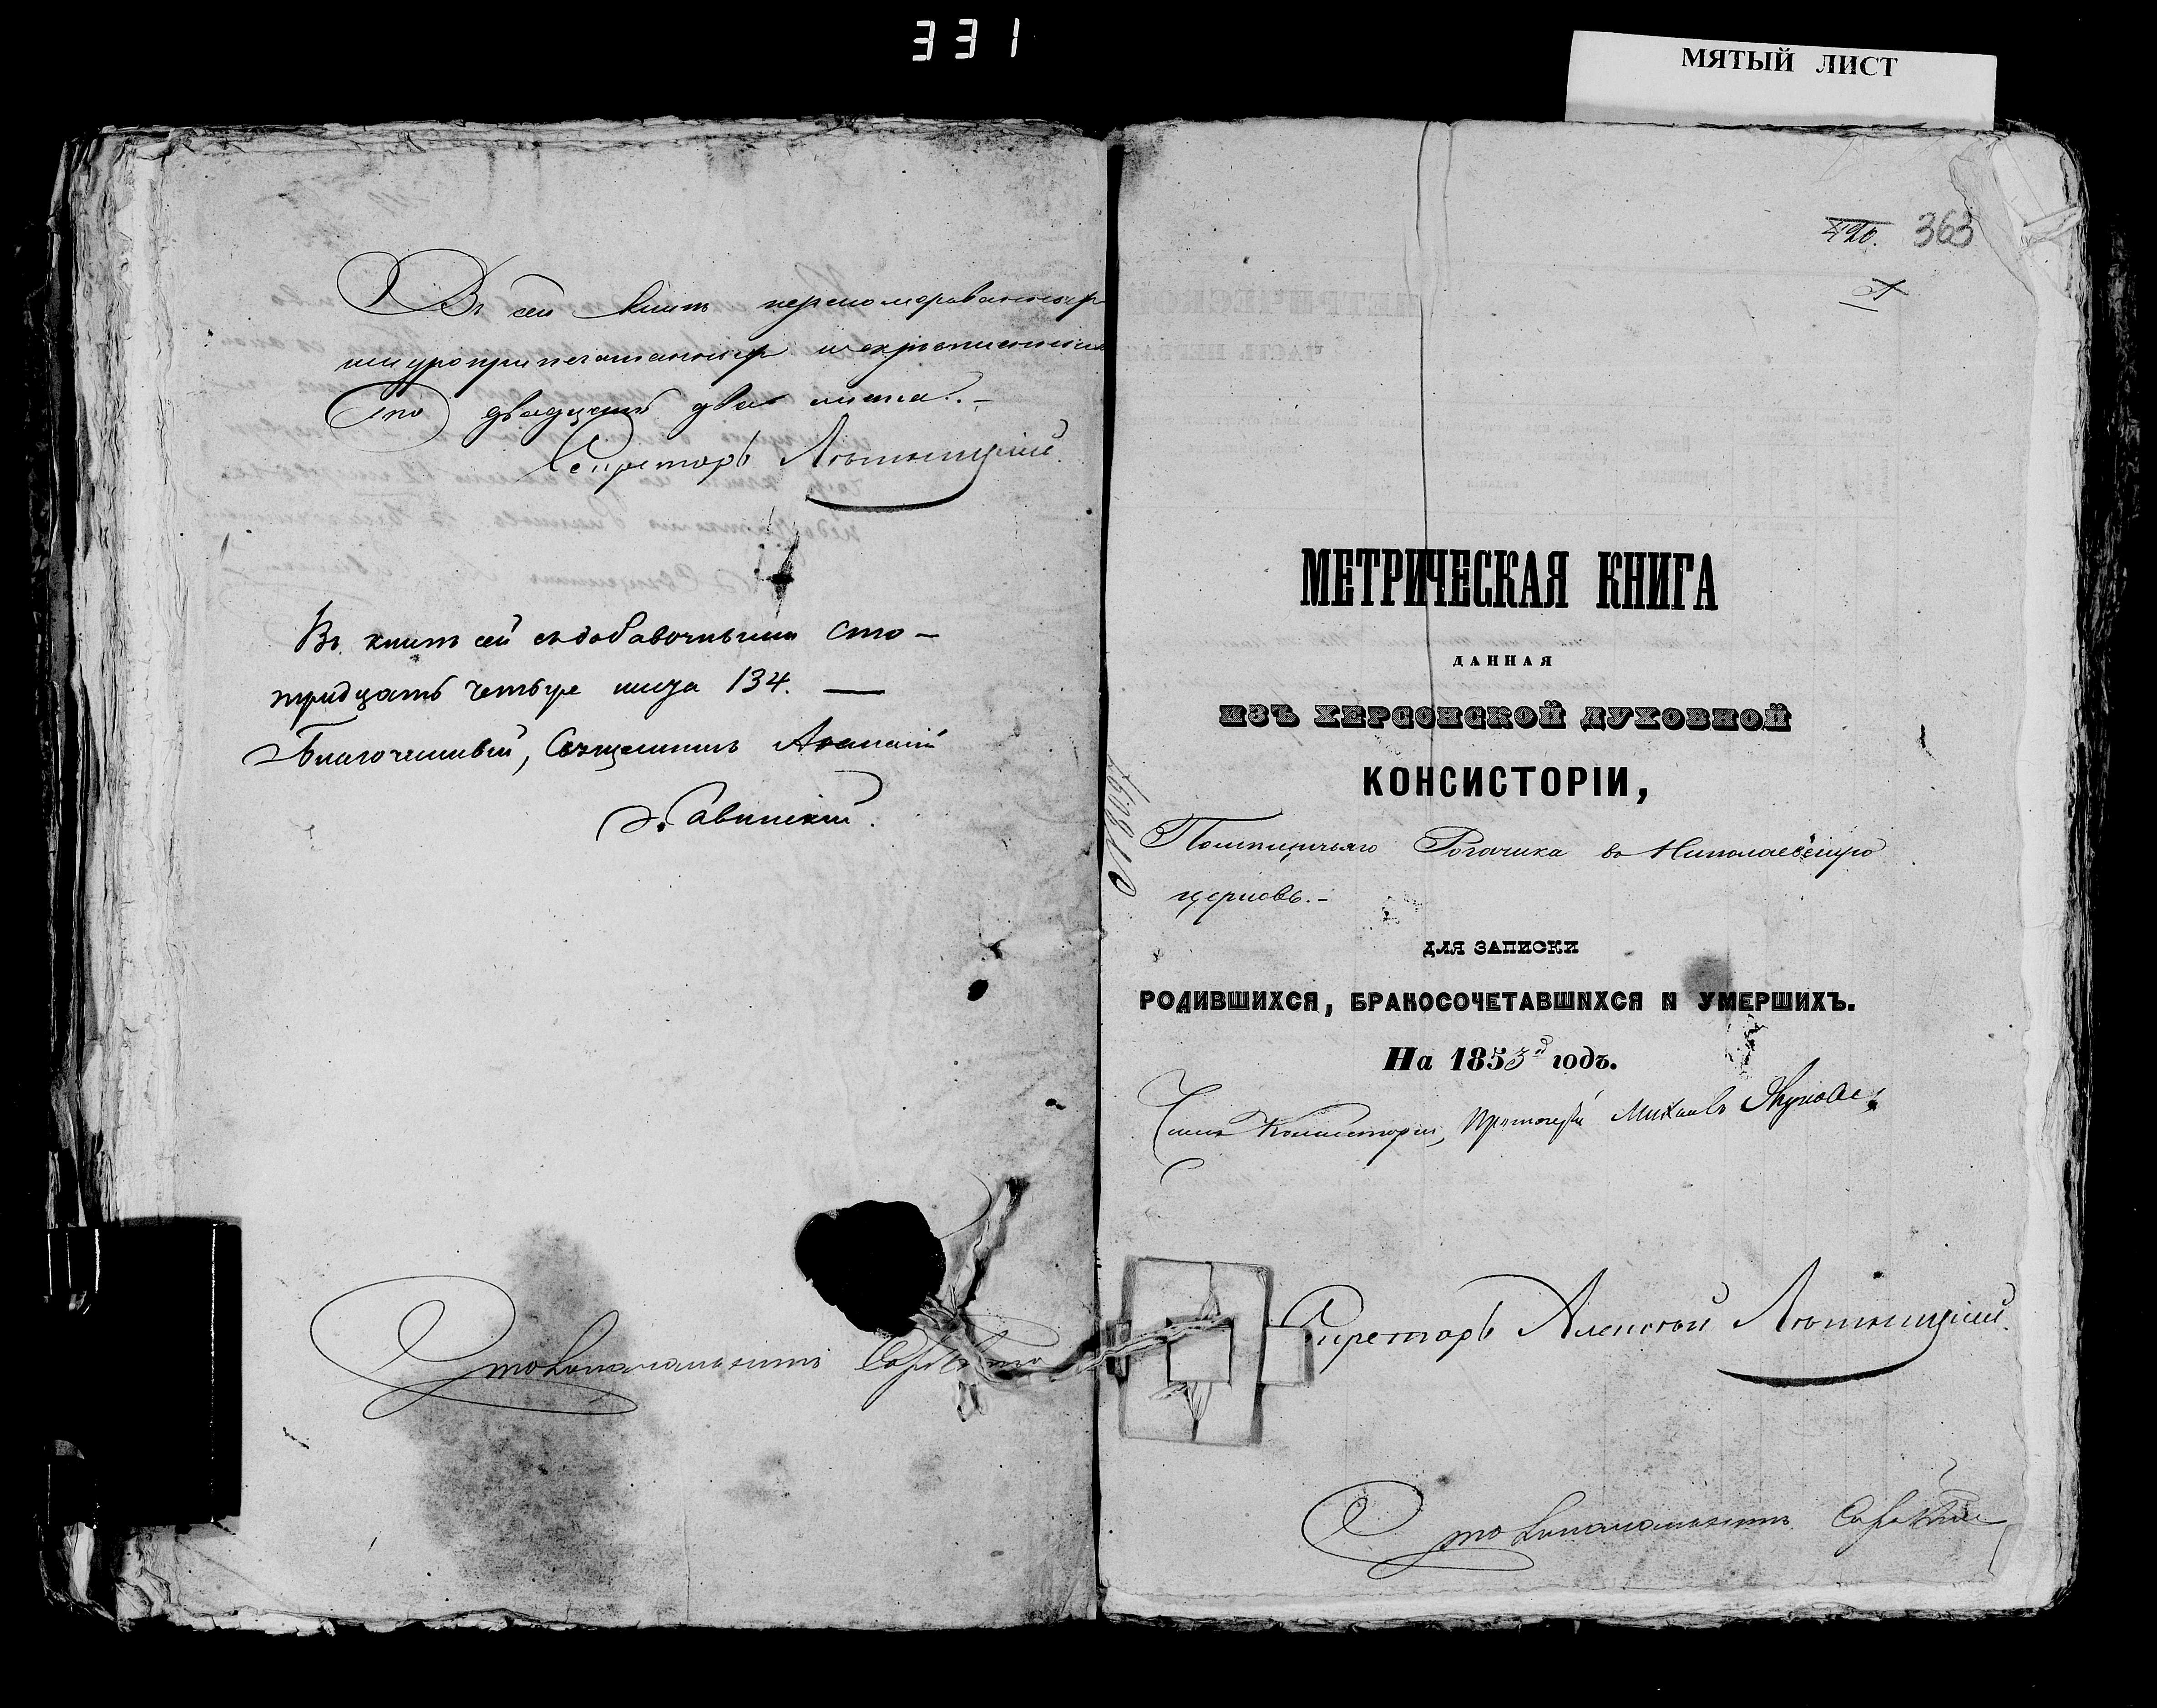 331
МЯТЫЙ ЛИСТ
Въ сей книгѣ перенумерованныхъ
шнуроприпечатанныхъ и скрѣпленныхъ
сто двадцать два листа.-
Секретарь
Въ книгѣ сей съ добавочными сто-
тридцать четыре листа 134. —
Благочинный, Священникъ
Савинскій.
Столоначальникъ
363
МЕТРИЧЕСКАЯ КНИГА
ДАННАЯ
ИЗЪ ХЕРСОНСКОЙ ДУХОВНОЙ
КОНСИСТОРІИ,
Рогачика въ Николаевскую
церковь.-
ДЛЯ ЗАПИСКИ
РОДИВШИХСЯ, БРАКОСОЧЕТАВШИХСЯ И УМЕРШИХЪ.
На 1853й годъ.
Членъ Консисторіи, Протоіерей Михаилъ
Секретарь Алексѣй
Столоначальникъ